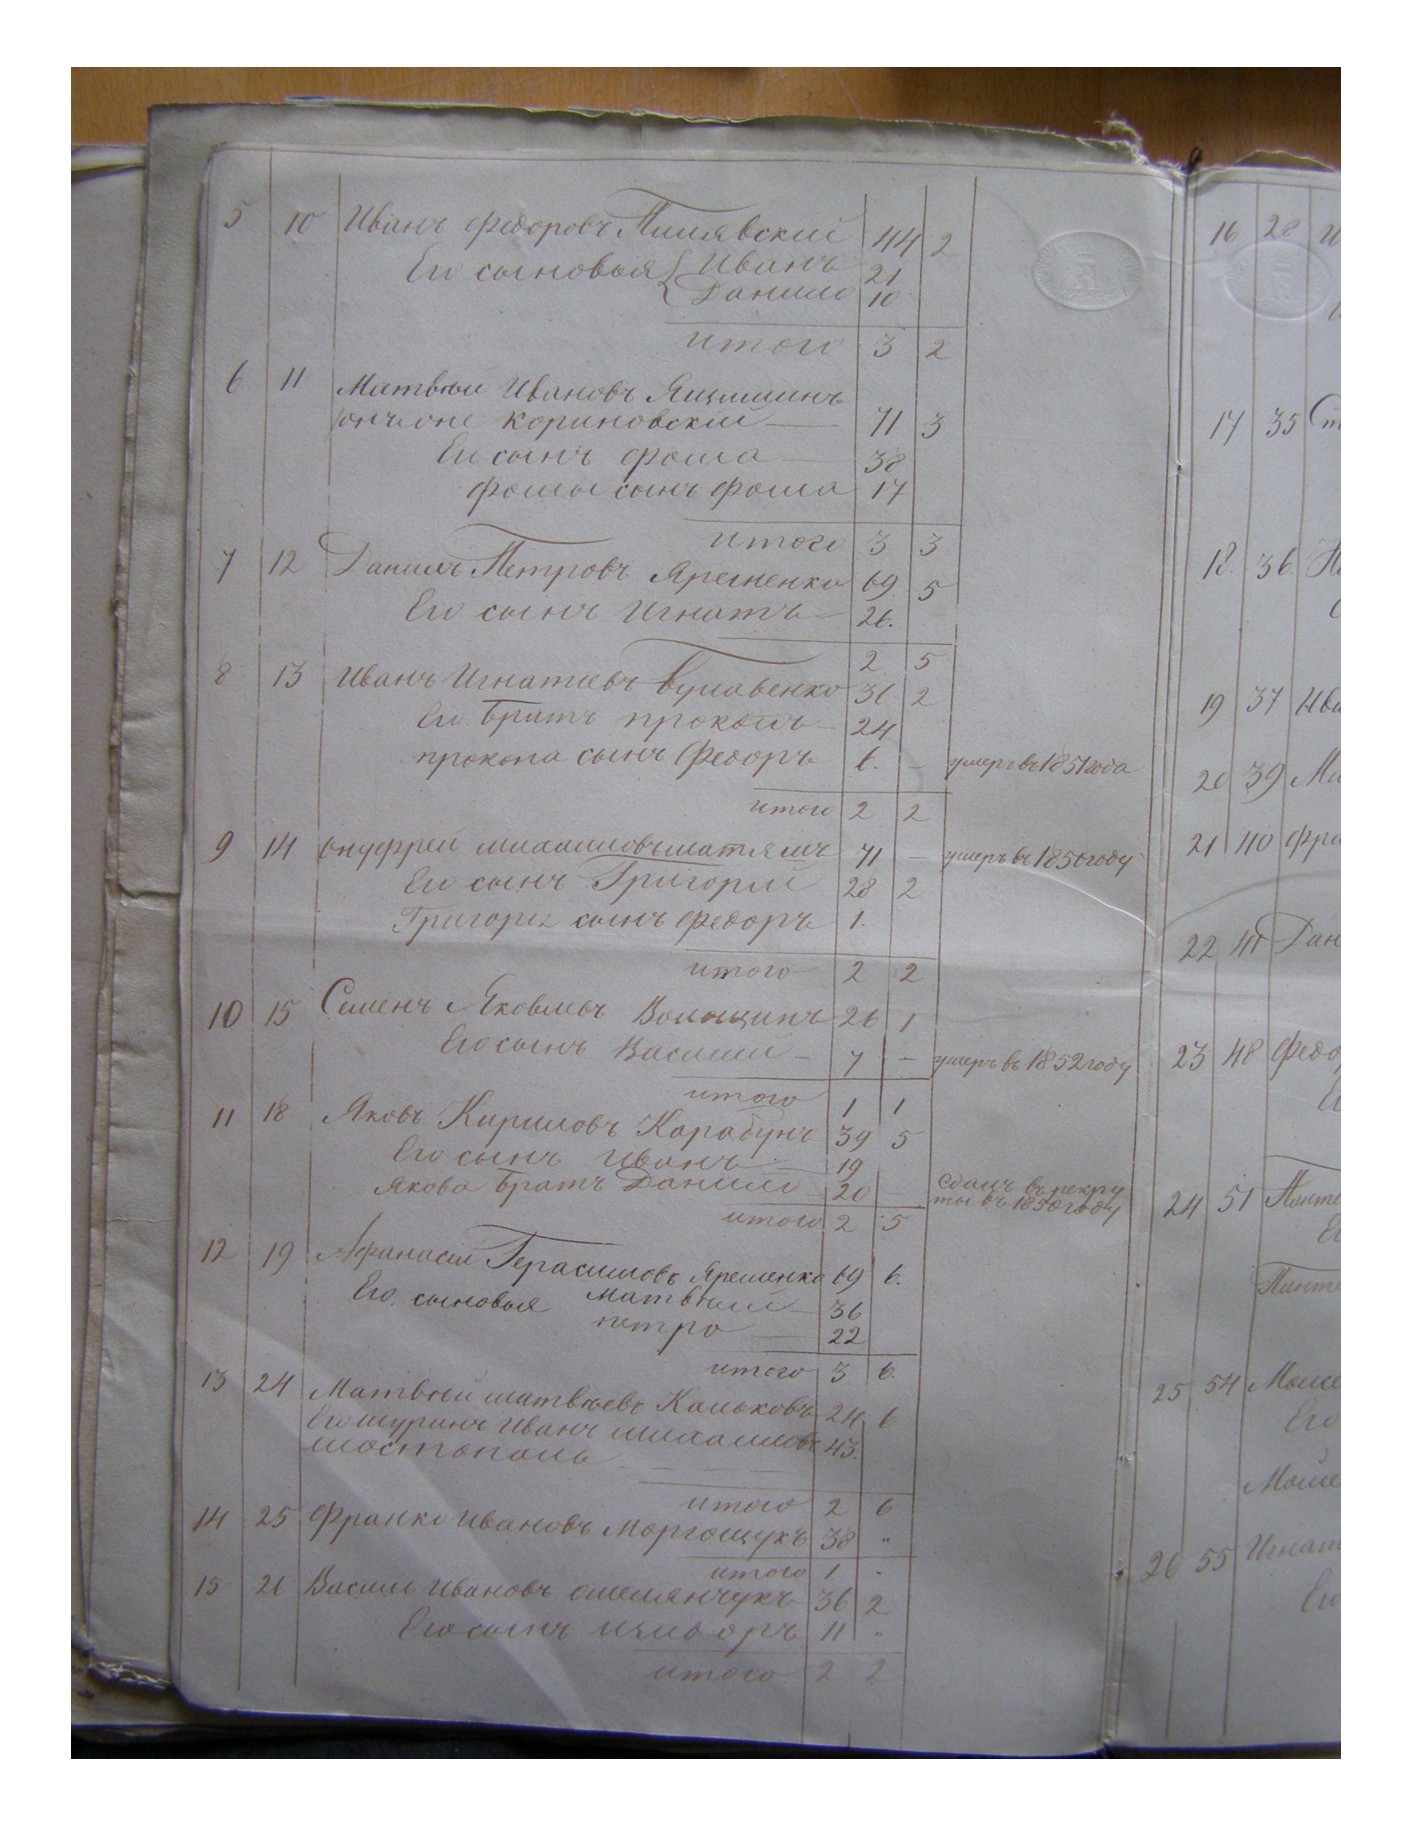 5 10 Иванъ Федоровъ 44 2
Его сыновья Иванъ 21
Данило 10
итого 3 2
6 11 Матвѣй Ивановъ
онъ же кориновскій 71 3
Его сынъ фома 38
фомы сынъ фома 17
итого 3 3
7 12 Данилъ Петровъ Яременко 69 5
Его сынъ Игнатъ 26.
2 5
8 13 Иванъ Игнатіевъ 36 2
Его братъ прокопъ 24
прокопа сынъ Федоръ 6. – умеръ въ 1851 года
итого 2 2
9 14 Онуфрей михаиловъ матяшъ 71 – умеръ въ 1850 году
Его сынъ Григорій 28 2
Григорія сынъ Федоръ 1.
итого 2 2
10 15 Семенъ Яковлевъ Волощинъ 26 1
Его сынъ Василій – 7 – умеръ въ 1852 году
итого 1 1
11 18 Яковъ Кириловъ Карабунъ 39 5
Его сынъ Иванъ 19
Якова братъ Данило 20 – сданъ въ рекру
ты въ 1850 году
итого 2 5
12 19 Афанасій Герасимовъ Яременко 69 6.
Его сыновья Матвѣй 36
петро 22
итого 3 6.
13 24 Матвѣй матвѣевъ Кольковъ 24 6
Его шуринъ Иванъ михаиловъ 43.
шостополь
итого 2 6
14 25 Франко Ивановъ 38 "
итого 1 "
15 26 Василь Ивановъ омелянчукъ 36 2
Его сынъ изидоръ 11 "
итого 2 2
16 28
17 35 Ст
18 36.
19 37 Ива
20 39 Ма
21 40 Фра
22 41 Дан
23 48 Федо
Е
24 51 Панте
Ег
Панте
25 54 Моисе
Его
Моисе
26 55 Игнат
Его